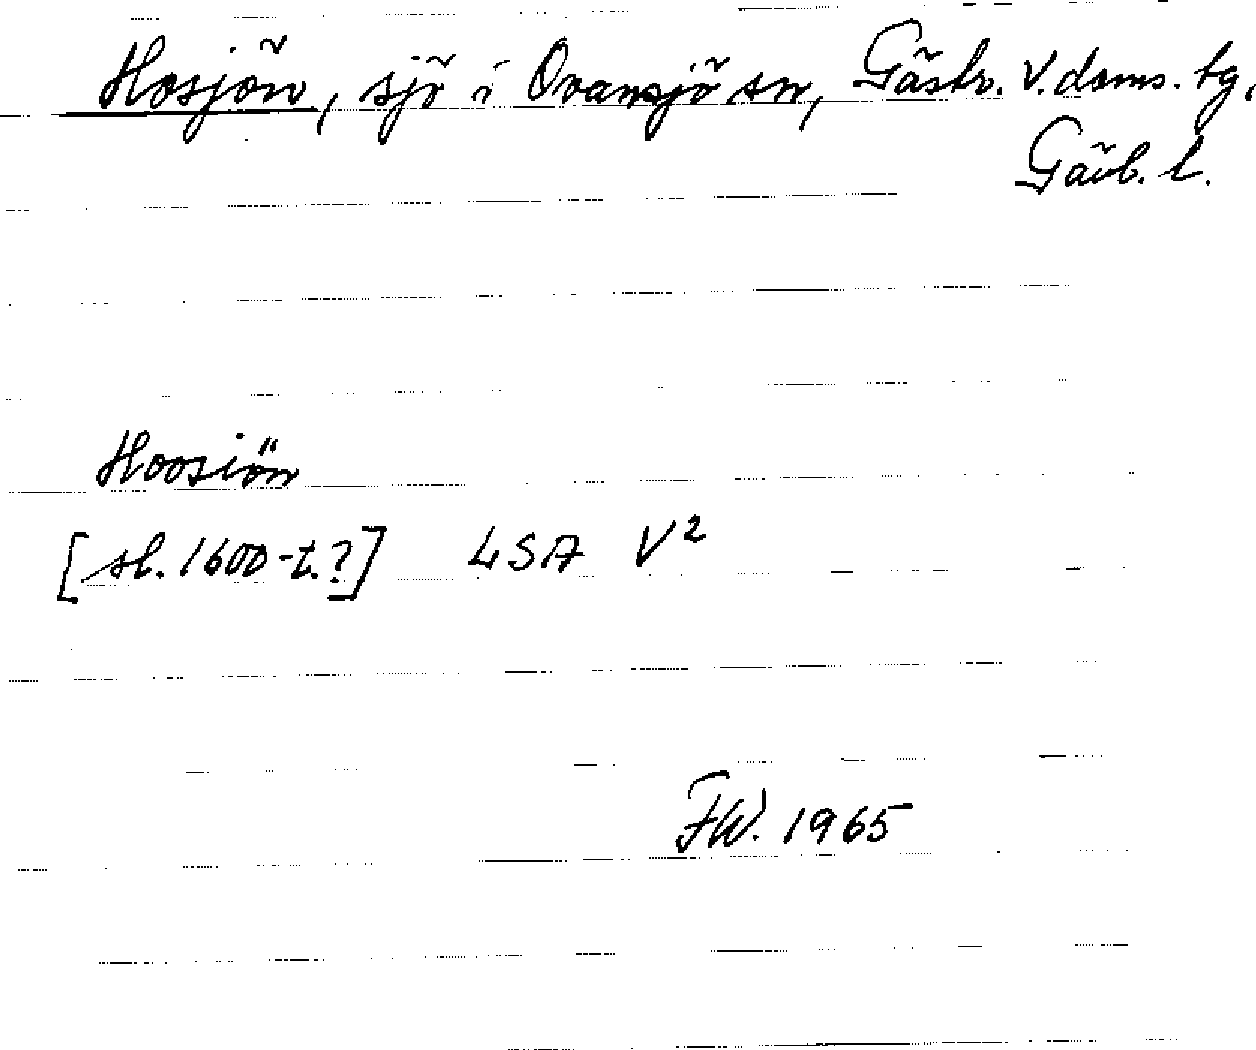 Hosjön, sjö i Ovansjö sn, Gästr. V. doms. tg,
Gävb. l.
Hoosiön
[sl. 1600-t.?] LSA V²
FW. 1965